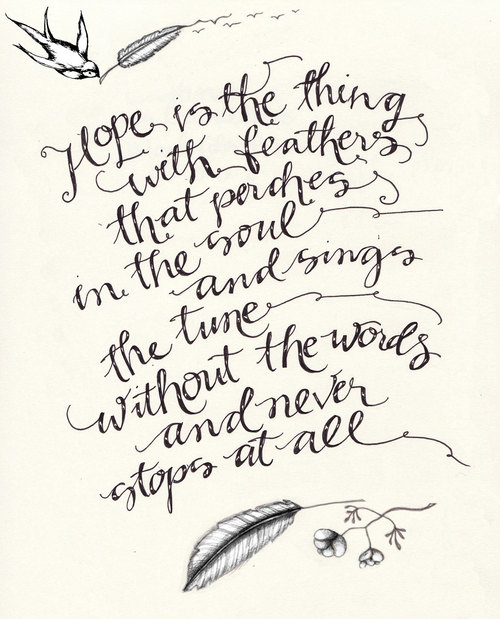 Hope is the thing
with feathers
that perches
in the soul
and sings
the tune
without the words
and never
stops at all